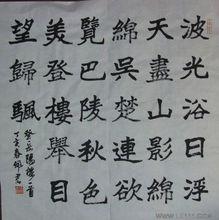 波光浴日浮
天盡山影綿
綿吳楚連欲
覽巴陵秋色
美登樓舉目
望歸颿
登岳陽樓一首
丁亥春